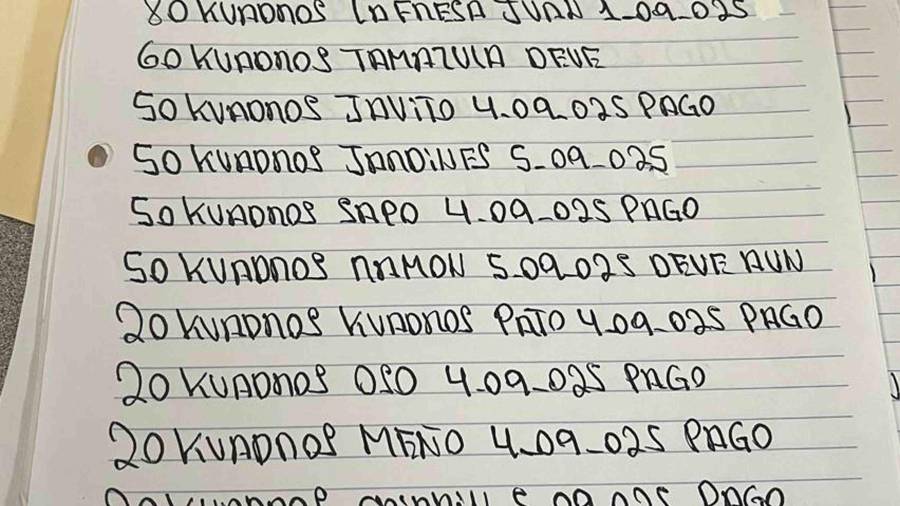 80 KUADROS LA FRESA JUAN 1-09-025
60 KUADROS TAMAZULA DEVE
50 KUADROS JAVITO 4-09-025 PAGO
50 KUADROS JARDINES 5-09-025
50 KUADROS SAPO 4-09-025 PAGO
50 KUADROS RAMON 5-09-025 DEVE AUN
20 KUADROS KUADROS PATO 4-09-025 PAGO
20 KUADROS OSO 4-09-025 PAGO
20 KUADROS MEÑO 4-09-025 PAGO
20 KUADROS 5-09-025 PAGO